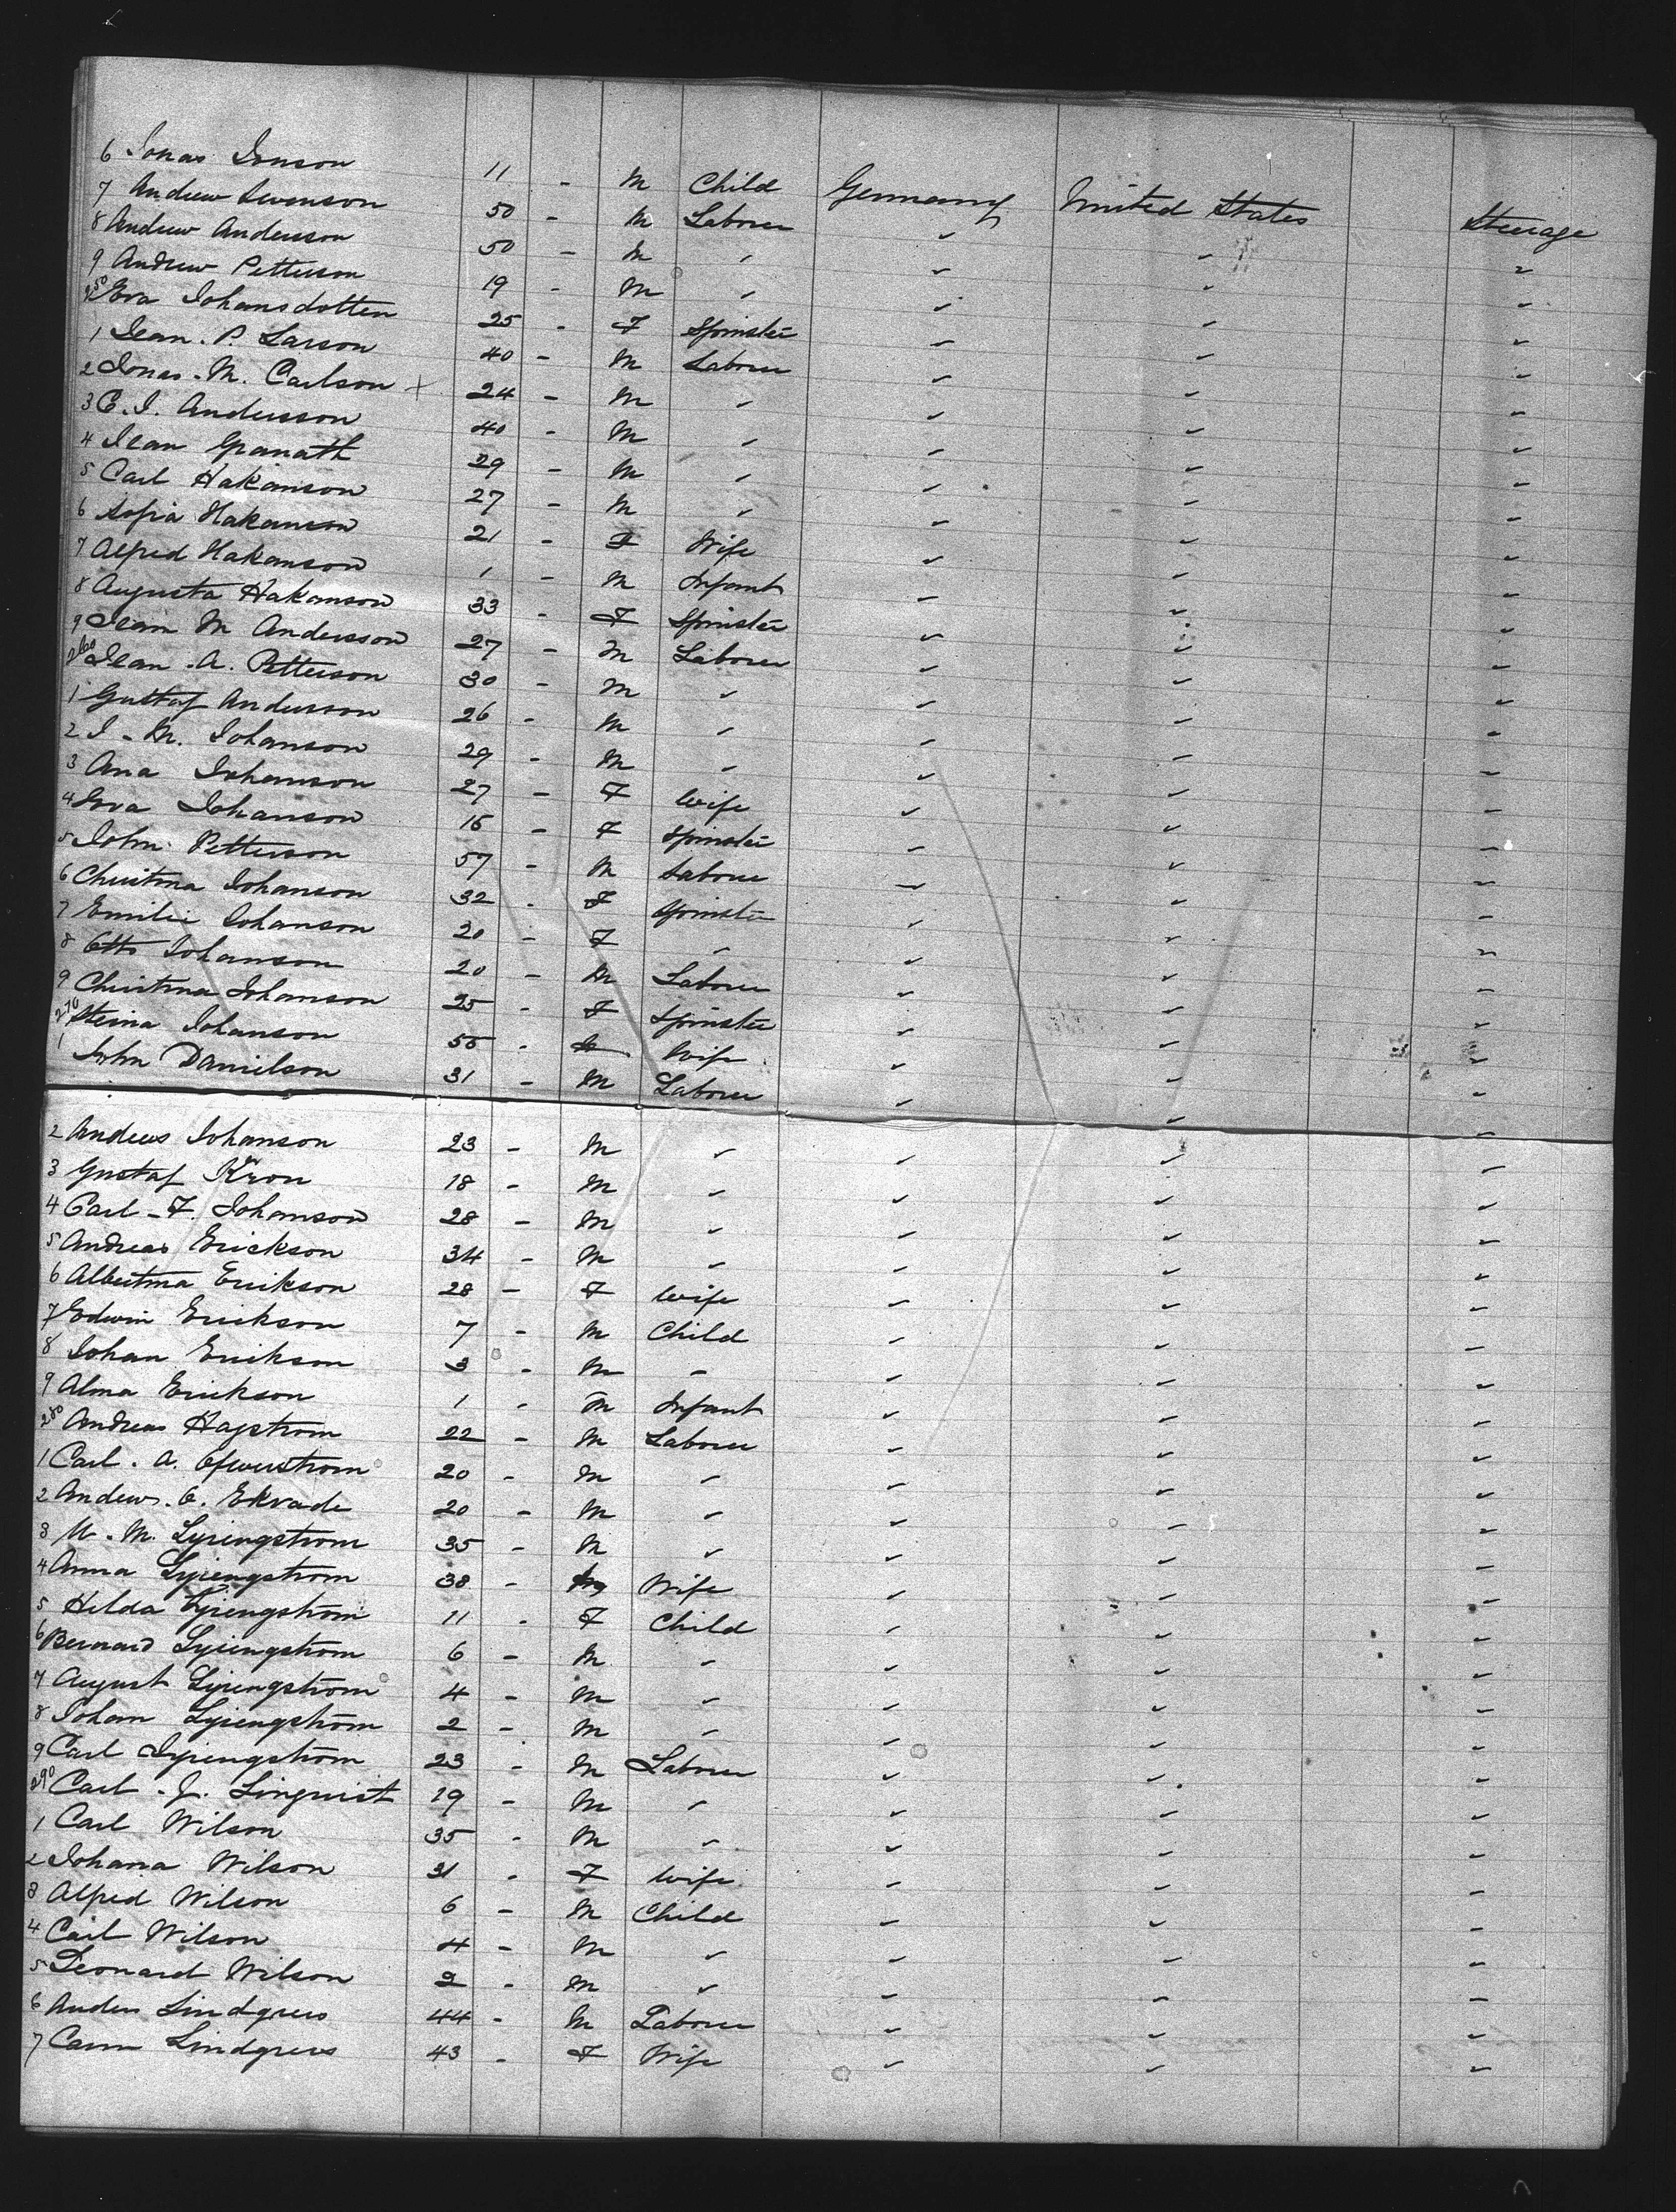 6 Jonas Jonson 11 - M Child Germany United States Steerage
7 Andrew Swenson 50 - M Laborer " " "
8 Andrew Anderson 50 - M " " " "
9 Andrew Petterson 19 - M " " " "
250 Eva Johansdotter 25 - F Spinster " " "
1 Jean. P. Larson 40 - M Laborer " " "
2 Jonas. M. Carlson + 24 - M " " " "
3 C. J. Andersson 40 - M " " " "
4 Jean Granath 29 - M " " " "
5 Carl Hakanson 27 - M " " " "
6 Sofia Hakanson 21 - F Wife " " "
7 Alfred Hakanson 1 - M Infant " " "
8 Augusta Hakanson 33 - F Spinster " " "
9 Jean M Andersson 27 - M Laborer " " "
260 Jean. A. Petterson 30 - M " " " "
1 Gustaf Anderson 26 - M " " " "
2 J - M. Johanson 29 - M " " " "
3 Ana Johanson 27 - F Wife " " "
4 Johanson - F Spinster " " "
5 John Petterson 57 - M Laborer " " "
6 Christina Johanson 32 - F Spinster " " "
7 Emilie Johanson 20 - F " " " "
8 Otto Johanson 20 - M Laborer " " "
9 Christina Johanson 25 - F Spinster " " "
270 Steina Johanson 55 - Wife " " "
1 John Danielson 31 - M Laborer " " "
2 Andrews Johanson 23 - M " " " "
3 Gustaf Kron 18 - M " " " "
4 Carl - F. Johanson 28 - M " " " "
5 Andreas Erickson 34 - M " " " "
6 Albertina Erikson 28 - F Wife " " "
7 Edwin Erickson 7 - M Child " " "
8 Johan Erikson 3 - M " " " "
9 Alma Erickson 1 - M Infant " " "
280 Andreas Hagstrom 22 - M Laborer " " "
1 Carl. A. 20 - M " " " "
2 Andrews. Ekvade 20 - M " " " "
3 M. Lyrengstrom 35 - M " " " "
4 Anna Lyrengstrom 38 - Wife " " "
5 Hilda Lyrengstrom 11 - F Child " " "
6 Bernard Lyrengstrom 6 - M " " " "
7 August Lyrengstrom 4 - M " " " "
8 Johan Lyrengstrom 2 - M " " " "
9 Carl Lyrengstrom 23 - M Laborer " " "
290 Carl. J. Linquist 19 - M " " " "
1 Carl Wilson 35 - M " " " "
2 Johana Wilson 31 - F Wife " " "
3 Alfred Wilson 6 - M Child " " "
4 Carl Wilson 4 - M " " " "
5 Leonard Wilson 2 - M " " " "
6 Anders Lindgrens 44 - M Laborer " " "
7 Lindgrens 43 - F Wife " " "